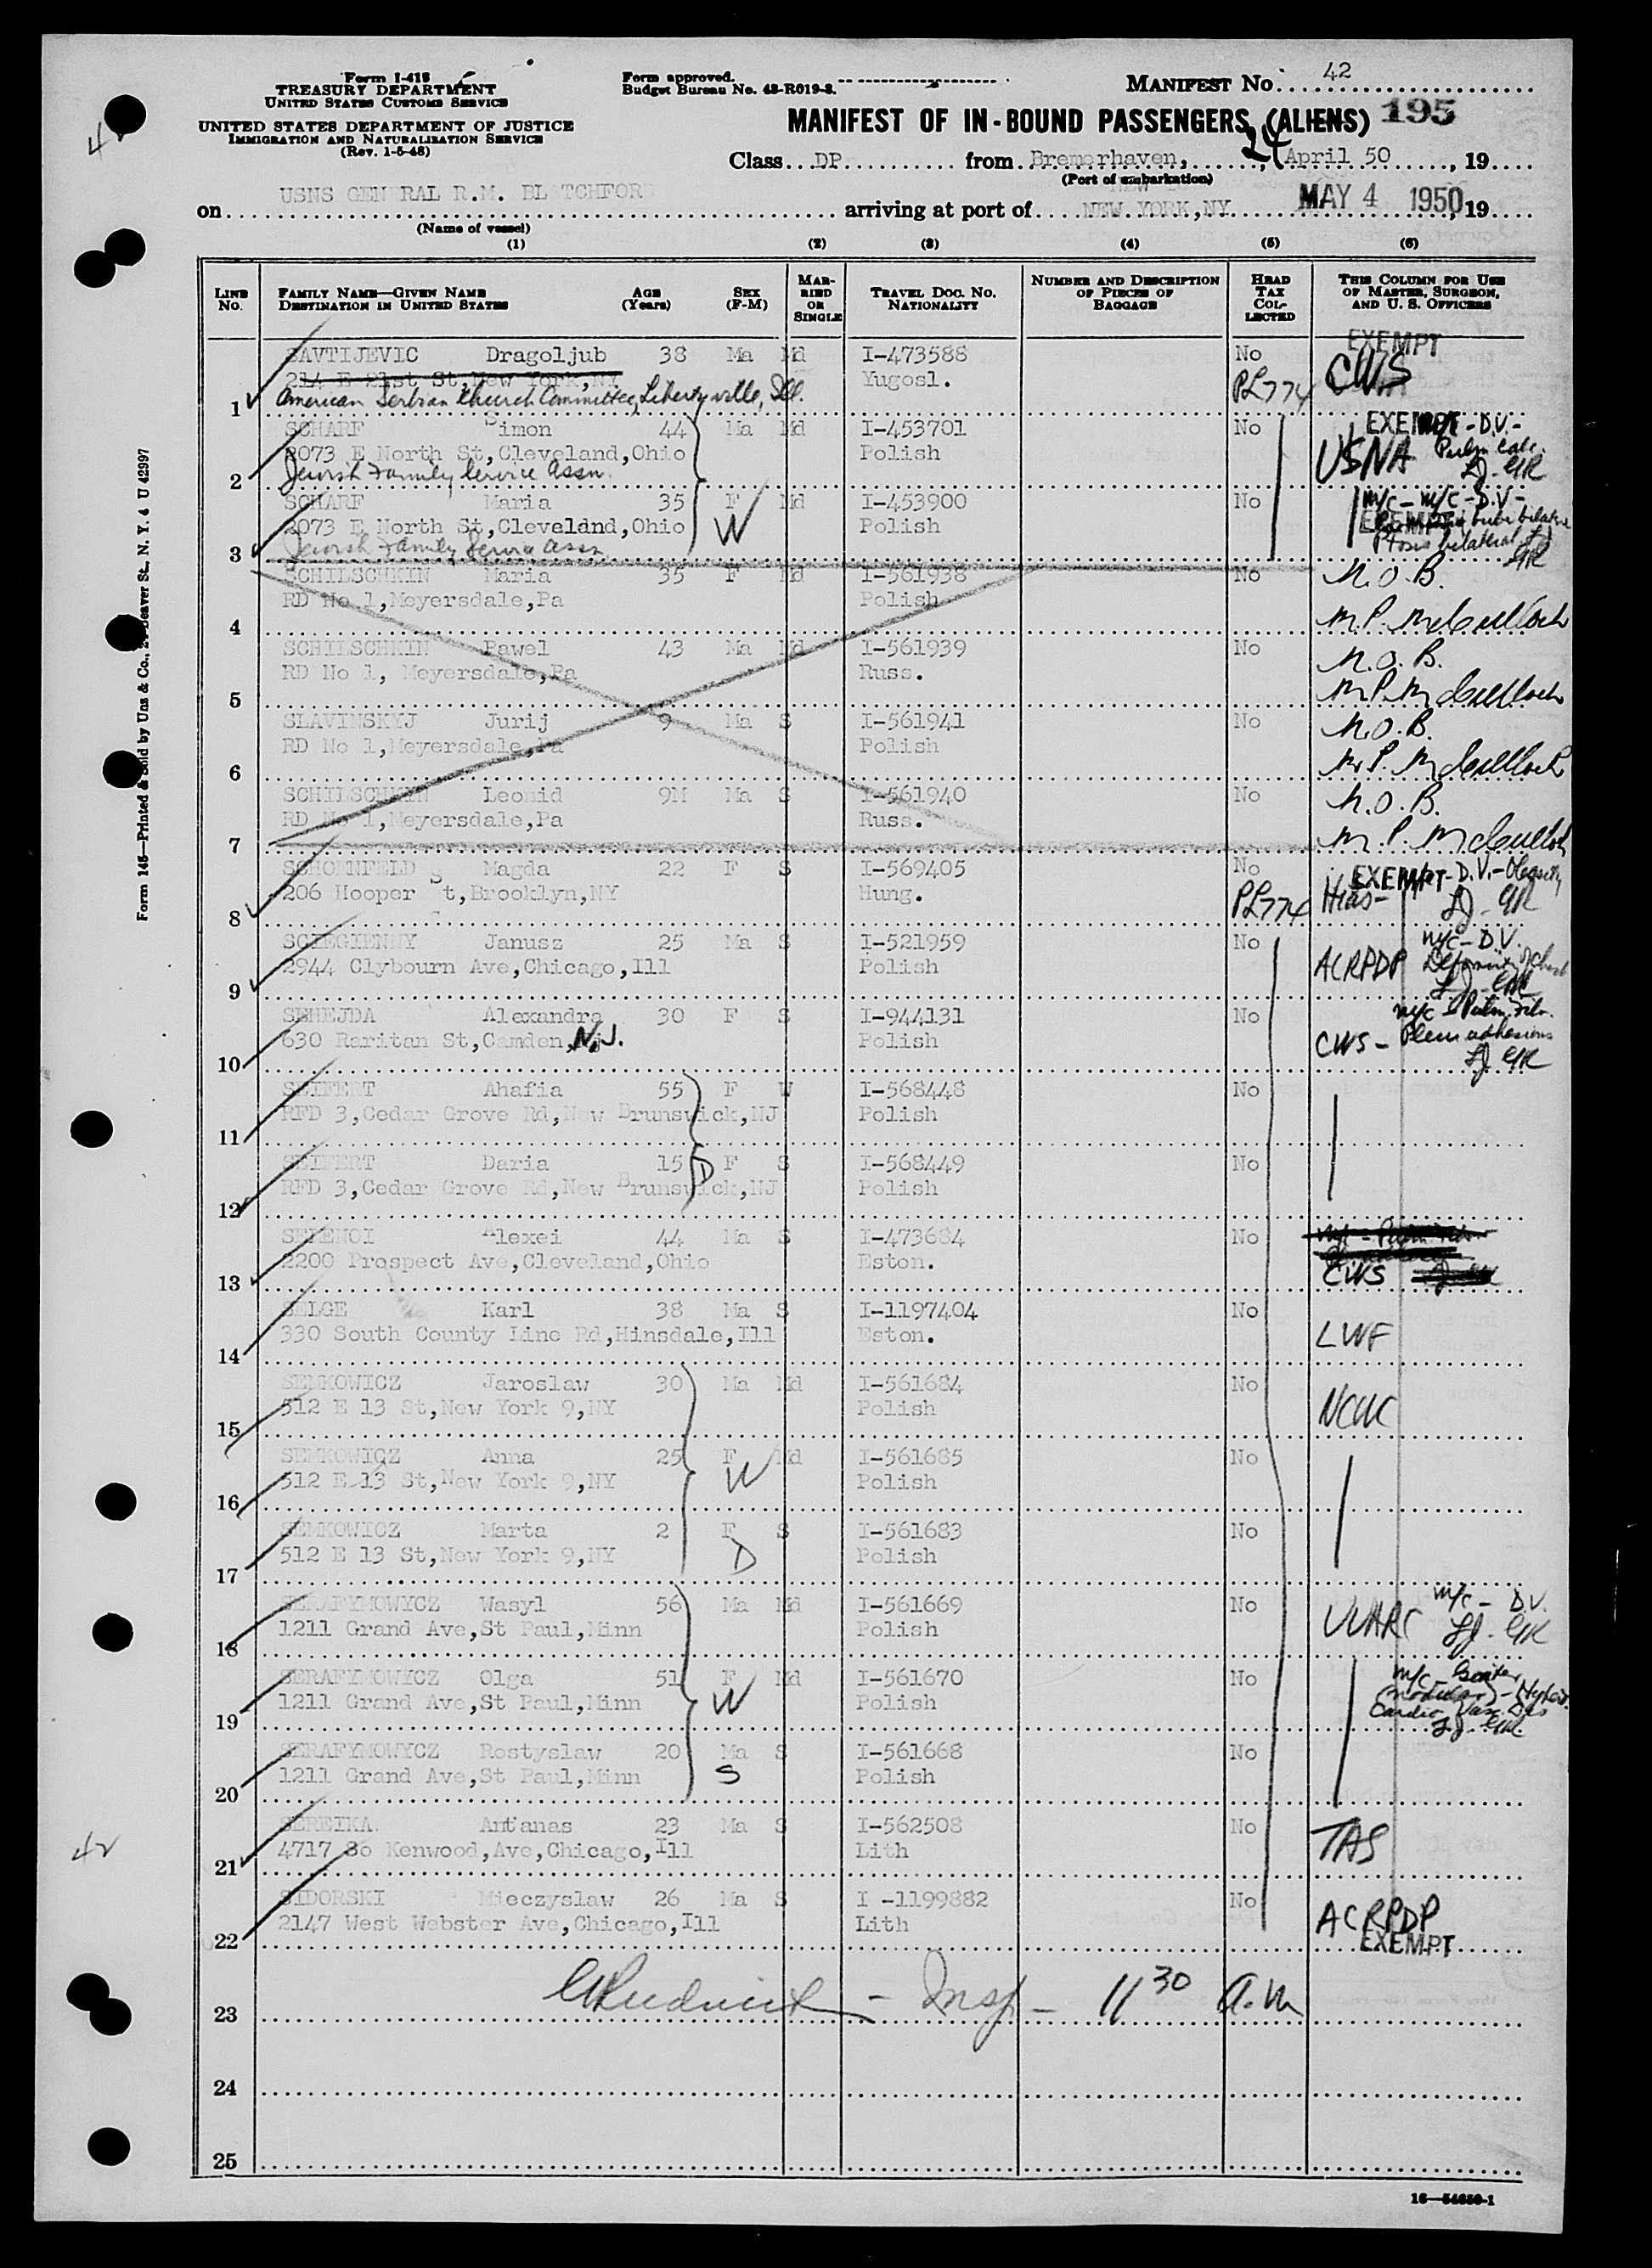 Form I-418
TREASURY DEPARTMENT
UNITED STATES CUSTOMS SERVICE
UNITED STATES DEPARTMENT OF JUSTICE
IMMIGRATION AND NATURALIZATION SERVICE
(Rev. 1-5-48)
Form approved.
Budget Bureau No. 43-R019-3.
MANIFEST No. 42
MANIFEST OF IN-BOUND PASSENGERS (ALIENS) 195
Class DP from Bremerhaven, 24 April 50, 19
(Port of embarkation)
on USNS GEN RAL R.M. BL TCHFORD arriving at port of NEW YORK,NY MAY 4 1950, 19
(Name of vessel)
(1) (2) (3) (4) (5) (6)
LINE NO.
FAMILY NAME—GIVEN NAME DESTINATION IN UNITED STATES
AGE (YEARS)
SEX (F-M)
MARRIED OR SINGLE
TRAVEL DOC. NO. NATIONALITY
NUMBER AND DESCRIPTION OF PIECES OF BAGGAGE
HEAD TAX COLLECTED
THIS COLUMN FOR USE OF MASTER, SURGEON, AND U. S. OFFICERS
SAVTIJEVIC Dragoljub 38 Ma Md I-473588 No EXEMPT
214 E 21st St,New York,NY Yugosl. PL774 CWS
1 American Serbian Church Committee, Libertyville, Ill.
SCHARF Simon 44 Ma Md I-453701 No EXEMPT - D.V.-
2073 E North St,Cleveland,Ohio Polish USNA
2 Jewish Family Service Assn.
SCHARF Maria 35 F Md I-453900 No M/C - D.V-
2073 E North St,Cleveland,Ohio W Polish EXEMPT
3 Jewish Family Service Assn Ptosis bilateral
SCHILSCHKIN Maria 35 F Md I-561938 No N.O.B.
RD No 1,Meyersdale,Pa Polish
4 M.P. McCulloch
SCHILSCHKIN Pawel 43 Ma Md I-561939 No N.O.B.
RD No 1, Meyersdale,Pa Russ.
5 M.P. McCulloch
SLAVINSKYJ Jurij 9 Ma S I-561941 No N.O.B.
RD No 1,Meyersdale,Pa Polish
6 M.P. McCulloch
SCHILSCHKIN Leonid 9M Ma S I-561940 No N.O.B.
RD No 1,Meyersdale,Pa Russ.
7 M.P. McCulloch
SCHOENFELD Magda 22 F S I-569405 No EXEMPT - D.V.-
206 Hooper St,Brooklyn,NY Hung. PL774 Hias-
8
SCIEGIENNY Janusz 25 Ma S I-521959 No M/C - D.V.
2944 Clybourn Ave,Chicago,Ill Polish ACRPDP
9
SEHEJDA Alexandra 30 F S I-944131 No M/C
630 Raritan St,Camden,N.J. Polish CWS -
10
SEIFERT Ahafia 55 F W I-568448 No
RFD 3,Cedar Grove Rd,New Brunswick,NJ Polish
11
SEIFERT Daria 15 D F S I-568449 No
RFD 3,Cedar Grove Rd,New Brunswick,NJ Polish
12
SEMENOI Alexei 44 Ma S I-473684 No
2200 Prospect Ave,Cleveland,Ohio Eston.
13 CWS
SELGE Karl 38 Ma S I-1197404 No
330 South County Line Rd,Hinsdale,Ill Eston. LWF
14
SEMKOWICZ Jaroslaw 30 Ma Md I-561684 No
512 E 13 St,New York 9,NY Polish NCWC
15
SEMKOWICZ Anna 25 F Md I-561685 No
512 E 13 St,New York 9,NY W Polish
16
SEMKOWICZ Marta 2 F S I-561683 No
512 E 13 St,New York 9,NY D Polish
17
SERAFYMOWYCZ Wasyl 56 Ma Md I-561669 No M/C - D.V.
1211 Grand Ave,St Paul,Minn Polish UUARC
18
SERAFYMOWYCZ Olga 51 F Md I-561670 No M/C - Goiter
1211 Grand Ave,St Paul,Minn W Polish
19
SERAFYMOWYCZ Rostyslaw 20 Ma S I-561668 No
1211 Grand Ave,St Paul,Minn S Polish
20
SEREIKA Antanas 23 Ma S I-562508 No
4717 So Kenwood,Ave,Chicago,Ill Lith TAS
21
SIDORSKI Mieczyslaw 26 Ma S I -1199882 No
2147 West Webster Ave,Chicago,Ill Lith ACRPDP
22 EXEMPT
23 - Insp - 11 30 a.m
24
25
16—54650-1
Form 145—Printed & Sold by Unz & Co., 24 Beaver St., N. Y. 4 U 42997
42
42